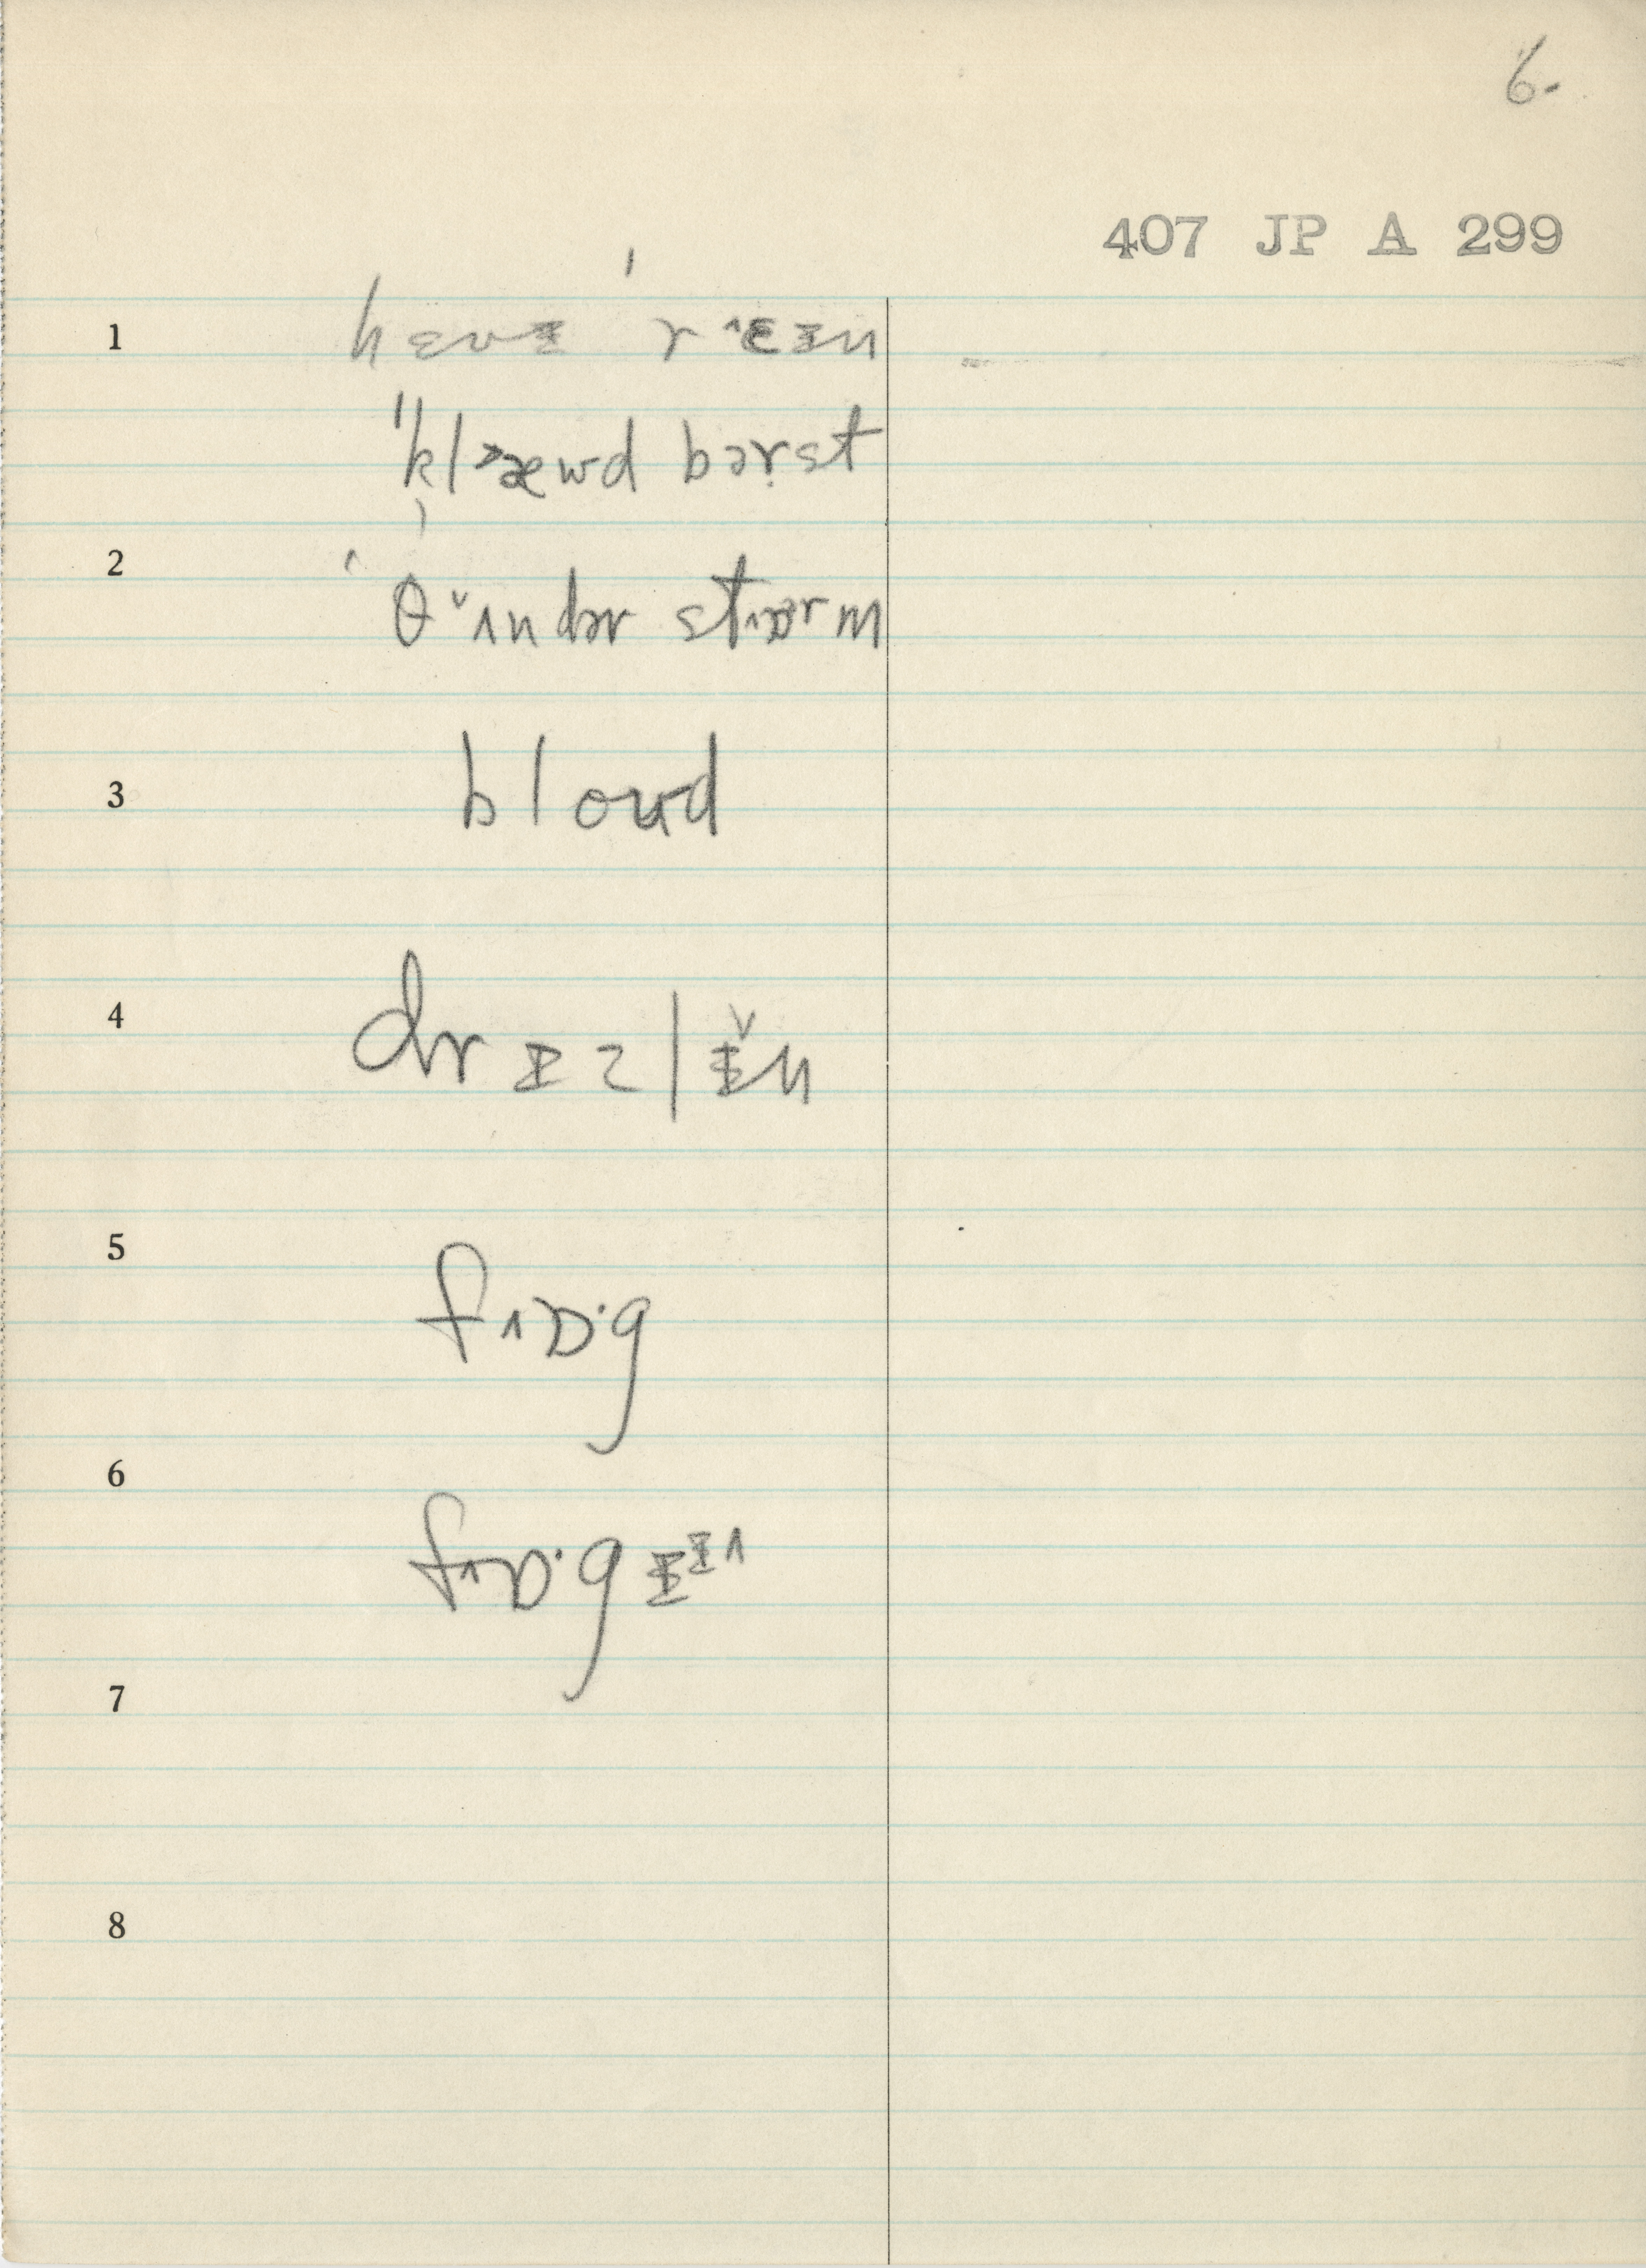 6.
407 JP A 299
1
hɛvɪ ˈr˄ɛɪn
ˈˈkl˃æwd bərst
2
ˈθ˅ʌndər st˄ɒɚrm
3
bloud
4
drɪzlɪ̌n
5
f˄ɒ·g
6
f˄ɒ·gɪᶦ˄
7
8